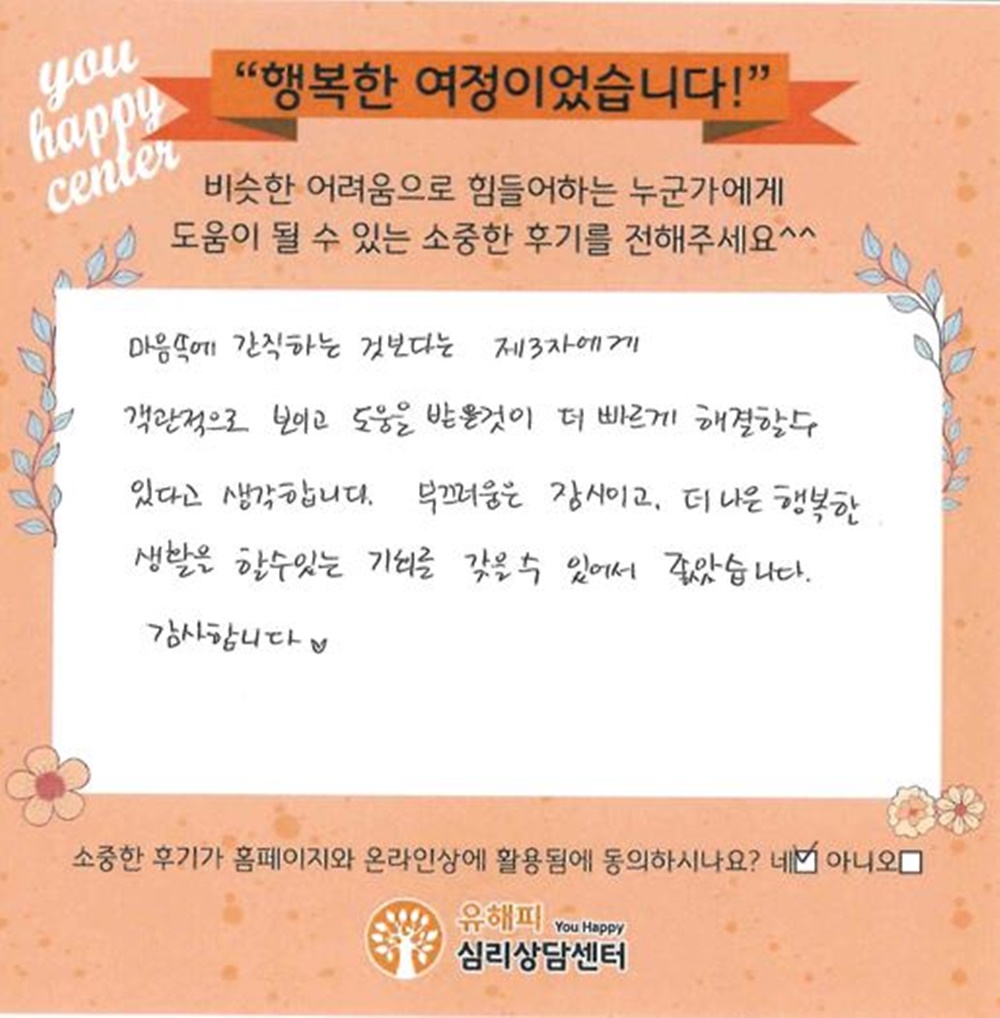 you
happy
center
“행복한 여정이었습니다!”
비슷한 어려움으로 힘들어하는 누군가에게
도움이 될 수 있는 소중한 후기를 전해주세요^^
마음속에 간직하는 것보다는 제3자에게
객관적으로 보이고 도움을 받는것이 더 빠르게 해결할수
있다고 생각합니다. 부끄러움은 잠시이고, 더 나은 행복한
생활을 할수있는 기회를 갖을 수 있어서 좋았습니다.
감사합니다
소중한 후기가 홈페이지와 온라인상에 활용됨에 동의하시나요? 네☑ 아니오☐
유해피 You Happy
심리상담센터